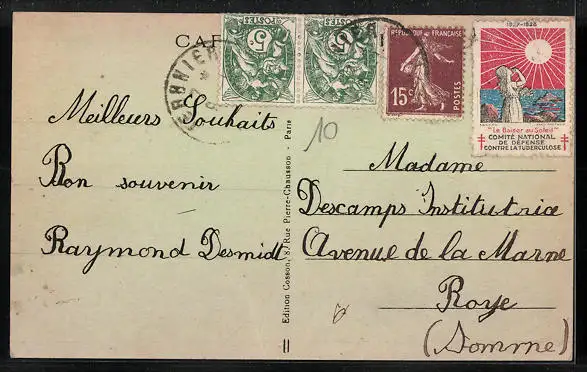 CAR
5
POSTES
5
POSTES
REPUBLIQUE FRANÇAISE
15c
POSTES
1927-1928
"Le Baiser au Soleil"
COMITÉ NATIONAL
DE DÉFENSE
CONTRE LA TUBERCULOSE
10
Meilleurs Souhaits
Bon souvenir
Raymond Desmidt
Edition Cosson, 8, Rue Pierre-Chausson - Paris
Madame
Descamps Institutrice
Avenue de la Marne
Roye
(Somme)